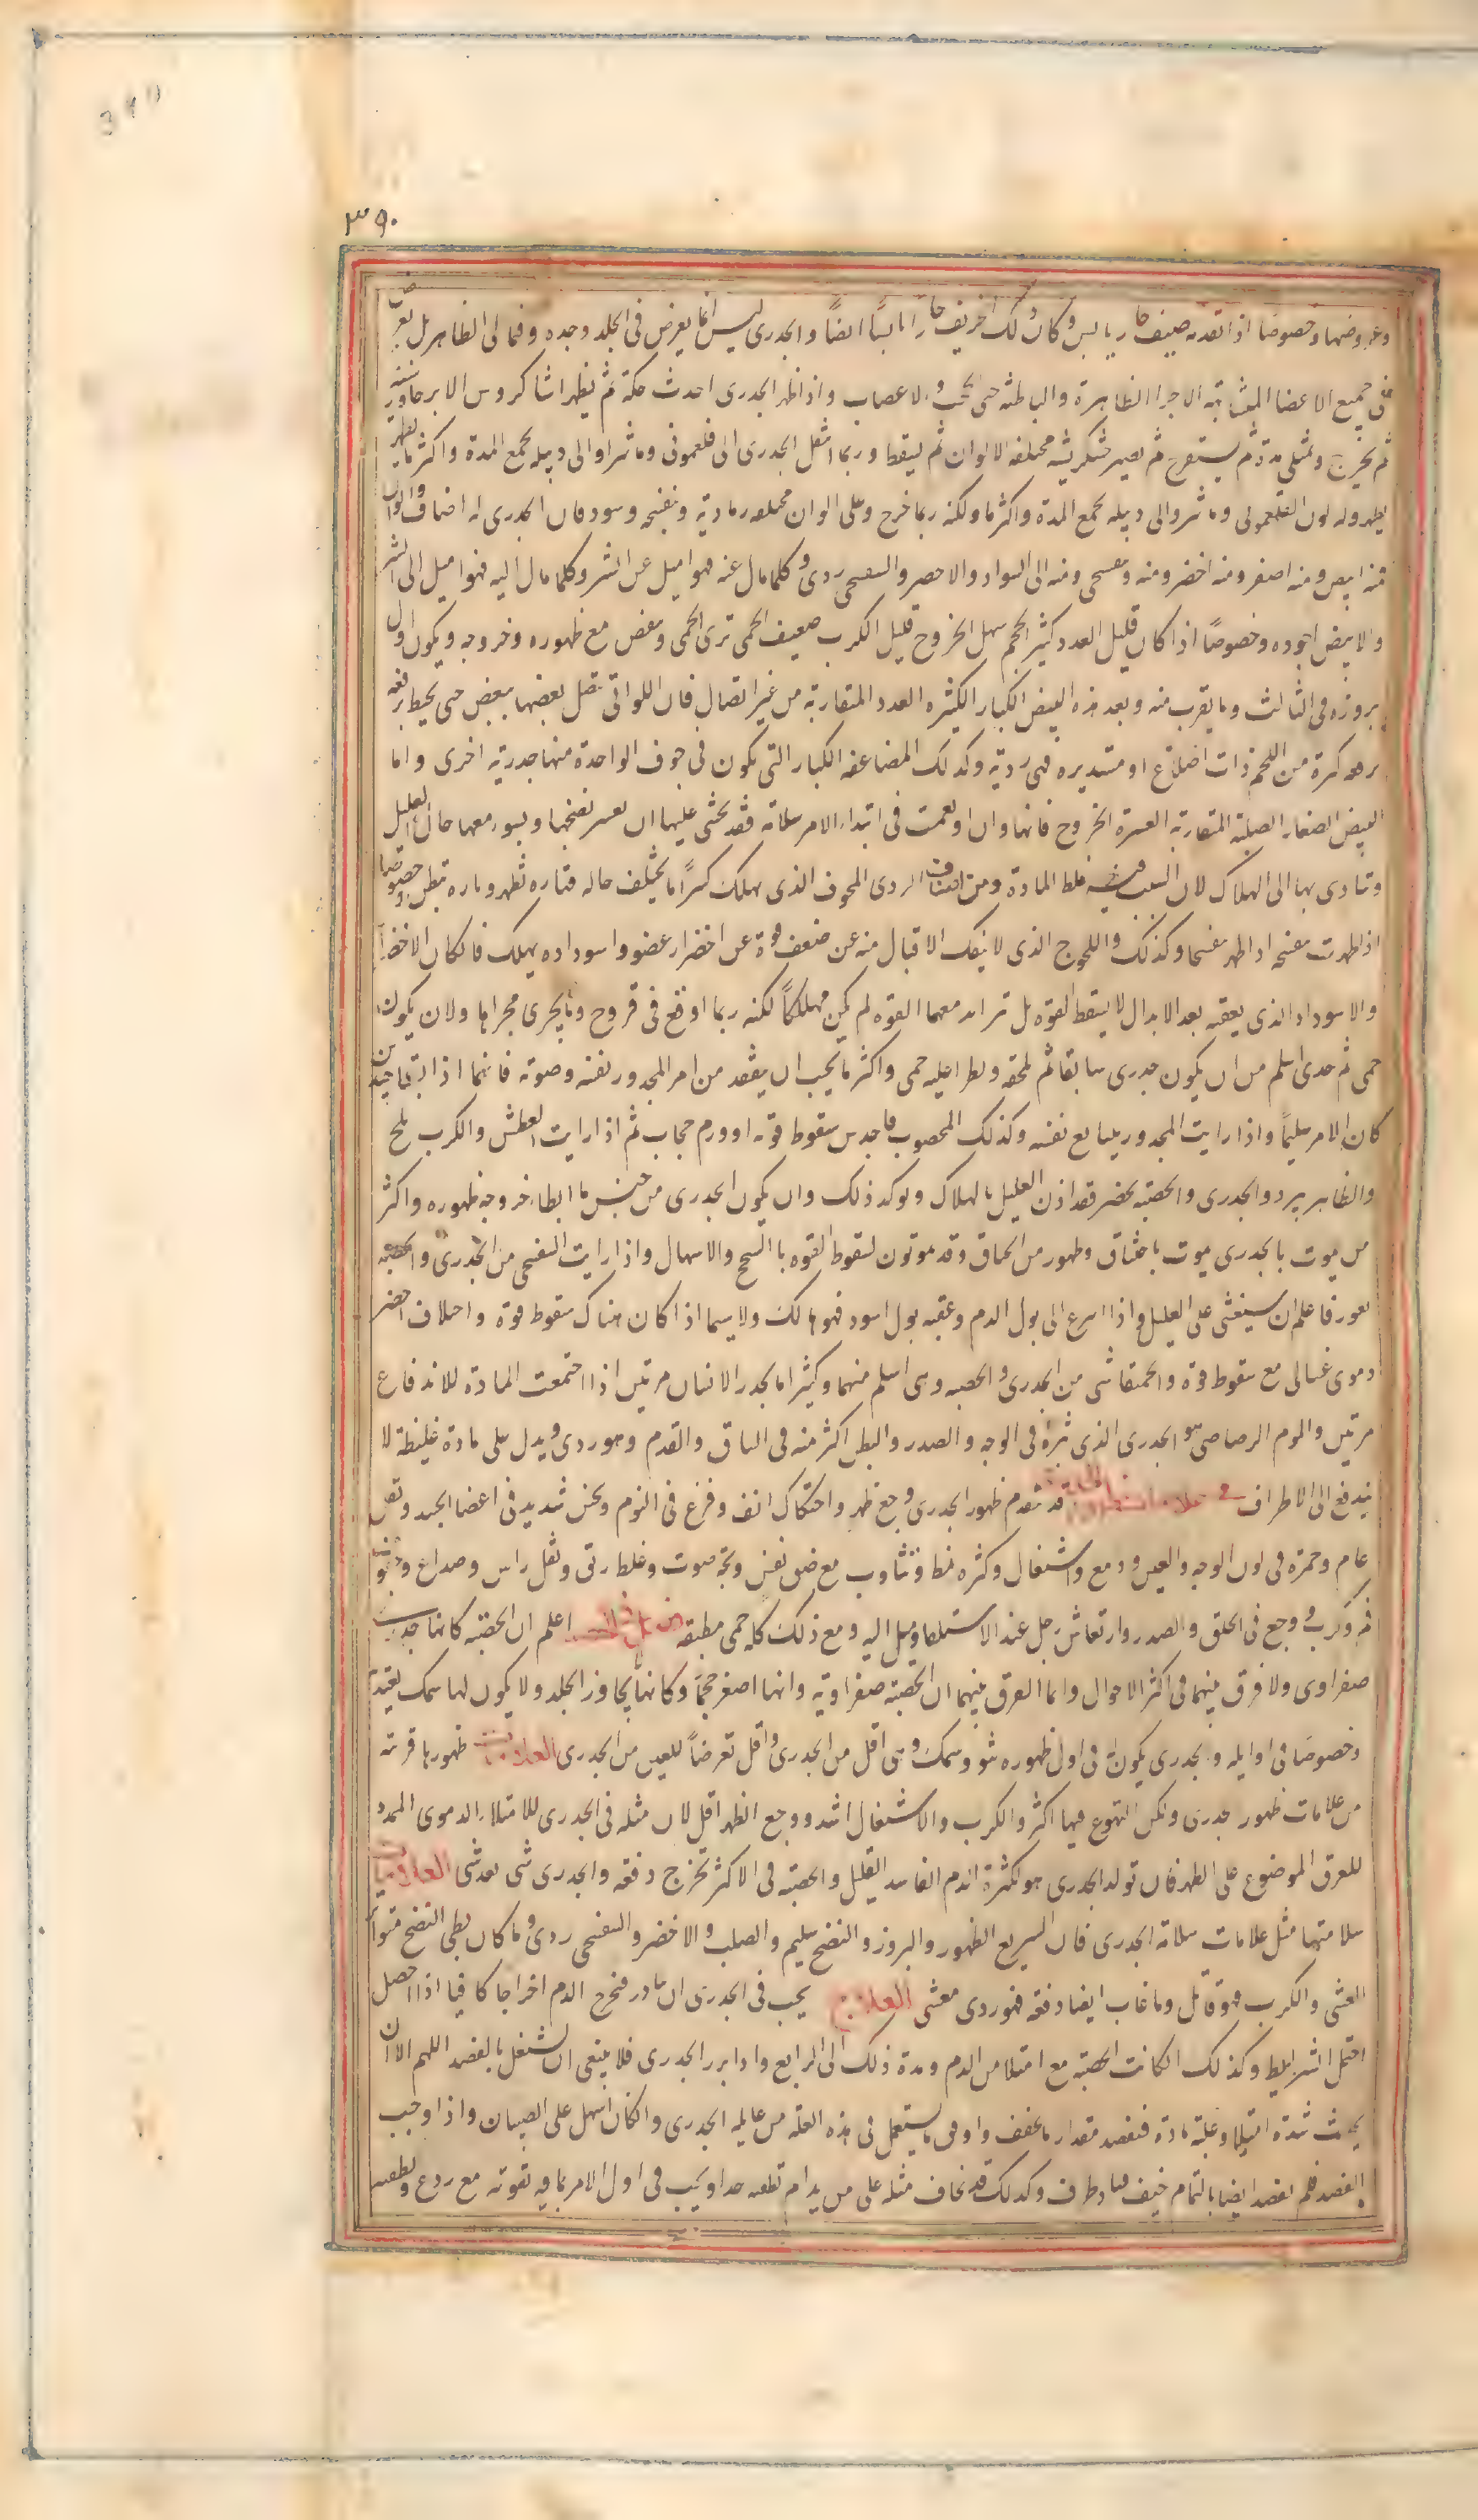 ٣٩٠
وعروضها وخصوصا اذا تقدمه صيف حار يابس وكان ذلك الخريف حارا يابسا ايضا والجدرى ليس انما يعرض فى الجلد وحده وفيما الى الظاهر بل يعرض
فى جميع الاعضا المتشابهة الاجزا الظاهرة والباطنه حتى الحجب والاعصاب واذا ظهر الجدرى احدث حكة ثم يظهر اشيا كروس الابر جاورسيه
ثم يخرج وتمتلى مدة ثم يستقرح ثم يصير خشكريشه مختلفه الالوان ثم يسقط وربما انتقل الجدرى الى فلغمونى وماشرا والى دبيله تجمع المدة واكثر ما يظهر
يظهر وله لون الفلغمونى وماشرا والى دبيله تجمع المدة واكثر ما ولكنه ربما خرج وعلى الوان مختلفه رمادية وبنفسجيه وسود فان الجدرى له اصناف والوان
فمنه ابيض ومنه اصفر ومنه اخضر ومنه بنفسجى ومنه الى السواد والاخضر والبنفسجى ردى وكلما مال عنه فهو اميل عن الشر وكلما مال اليه فهو اميل الى الشر
والابيض اجوده وخصوصا اذا كان قليل العدد كثير الحجم سهل الخروج قليل الكرب ضعيف الحمى ترى الحمى وتنقص مع ظهوره وخروجه ويكون اول
بروزه فى الثالث وما يقرب منه وبعد هذه البيض الكبار الكثيره العدد المتقاربة من غير اتصال فان اللواتى تتصل بعضها ببعض حتى يحيط برقعه
كبيرة من اللحم ذات اضلاع او مستديره فهى رديه وكذلك المضاعفه الكبار التى يكون فى جوف الواحدة منها جدرية اخرى واما
البيض الصغار الصلبة المتقاربة العسرة الخروج فانها وان اوهمت فى ابتداء الامر سلامة فقد يخشى عليها ان يعسر نضجها ويسوء معها حال العليل
وتتادى بها الى الهلاك لان السبب فيه غلظ المادة ومن اصناف الردى المخوف الذى يهلك كثيرا ما يختلف حاله فتاره تظهر وتاره تبطن وخصوصا
اذا ظهرت بنفسجيه اذا ظهر بنفسجيا وكذلك واللجوج الذى لا ينفك الاقبال منه عن ضعف قوة عن اخضرار عضو واسوداده يهلك فان كان الاخضرار
والاسوداد الذى يعقبه بعد الابدال لا يسقط القوة بل تزايد معهما القوه لم يكن مهلكا لكنه ربما اوقع فى قروح وما يجرى مجراها ولان يكون
حمى ثم جدرى اسلم من ان يكون جدرى سابقا ثم تلحقه وتطرا عليه حمى واكثر ما يجب ان يتفقد من امر المجدور نفسه وصوته فانهما اذا بقيا جيدين
كان الامر سليما واذا رايت المجدور يتتابع نفسه وكذلك المحصوب فاحدس سقوط قوة او ورم حجاب ثم اذا رايت العطش والكرب يلح
والظاهر يبرد والجدرى والحصبة يخضر فقد اذن العليل بالهلاك ويوكد ذلك وان يكون الجدرى من جنس ما ابطاء خروجه ظهوره واكثر
من يموت بالجدرى يموت باختناق وظهور من الخناق وقد يموتون لسقوط القوه بالسحج والاسهال واذا رايت البنفسجى من الجدرى والحصبه
يغور فاعلم ان سيغشى على العليل واذا اسرع الى بول الدم وعقبه بول اسود فهو هالك ولا سيما اذا كان هناك سقوط قوة واختلاف اخضر
دموى غسالى مع سقوط قوة والحمقا شى من الجدرى والحصبه وهى اسلم منهما وكثيرا ما يجدر الانسان مرتين اذا اجتمعت المادة للاندفاع
مرتين والموم الرصاصى هو الجدرى الذى بثره فى الوجه والصدر والبطن اكثر منه فى الساق والقدم وهو ردى ويدل على مادة غليظة لا
يندفع الى الاطراف فى علامات ظهور الجدرى قد يتقدم ظهور الجدرى وجع ظهر واحتكاك انف وفزع فى النوم ونخس شديد فى اعضا الجسد وثقل
عام وحمرة فى لون الوجه والعين ودمع واشتعال وكثره تمط وتثاوب مع ضيق نفس وبحة صوت وغلظ ريق وثقل راس وصداع وجفوف
فم وكرب ووجع فى الحلق والصدر وارتعاش رجل عند الاستلقا وميل اليه ومع ذلك كله حمى مطبقه فصل فى الحصبه اعلم ان الحصبة كانها جدرى
صفراوى ولا فرق بينهما فى اكثر الاحوال وانما الفرق بينهما ان الحصبة صفراوية وانها اصغر حجما وكانها لا يجاوز الجلد ولا يكون لها سمك يعتد به
وخصوصا فى اوايله والجدرى يكون فى اول ظهوره نتو وسمك وهى اقل من الجدرى واقل تعرضا للعين من الجدرى العلامات ظهورها قريبة
من علامات ظهور جدرى ولكن التهوع فيها اكثر والكرب والاشتعال اشد ووجع الظهر اقل لان مثله فى الجدرى للامتلاء الدموى الممدد
للعرق الموضوع على الظهر فان تولد الجدرى هو لكثرة الدم الفاسد القليل والحصبة فى الاكثر تخرج دفعه والجدرى شى بعد شى العلامات
سلامتها مثل علامات سلامة الجدرى فان السريع الظهور والبروز والنضج سليم والصلب والاخضر والبنفسجى ردى وما كان بطى النضج متواتر
الغشى والكرب فهو قاتل وما غاب ايضا دفعه فهو ردى مغشى العلاج يجب فى الجدرى ان يبادر فيخرج الدم اخراجا كافيا اذا حصل
احتمل الشرايط وكذلك ان كانت الحصبة مع امتلا من الدم ومدة ذلك الى الرابع واذا برز الجدرى فلا ينبغى ان يشتغل بالفصد اللهم الا ان
يحدث شدة امتلا وغلبة مادة فيفصد مقدار ما يخفف واوفى ما يستعمل فى هذه العلة من الجدرى وان كان اسهل على الصبيان واذا وجب
الفصد فلم يفصد ايضا بالتمام خيف فساد طرف وكذلك قد يخاف مثله على من يدام تطفيه جدا ويجب فى اول الامر بما فيه تقويه مع ردع وتطفيه